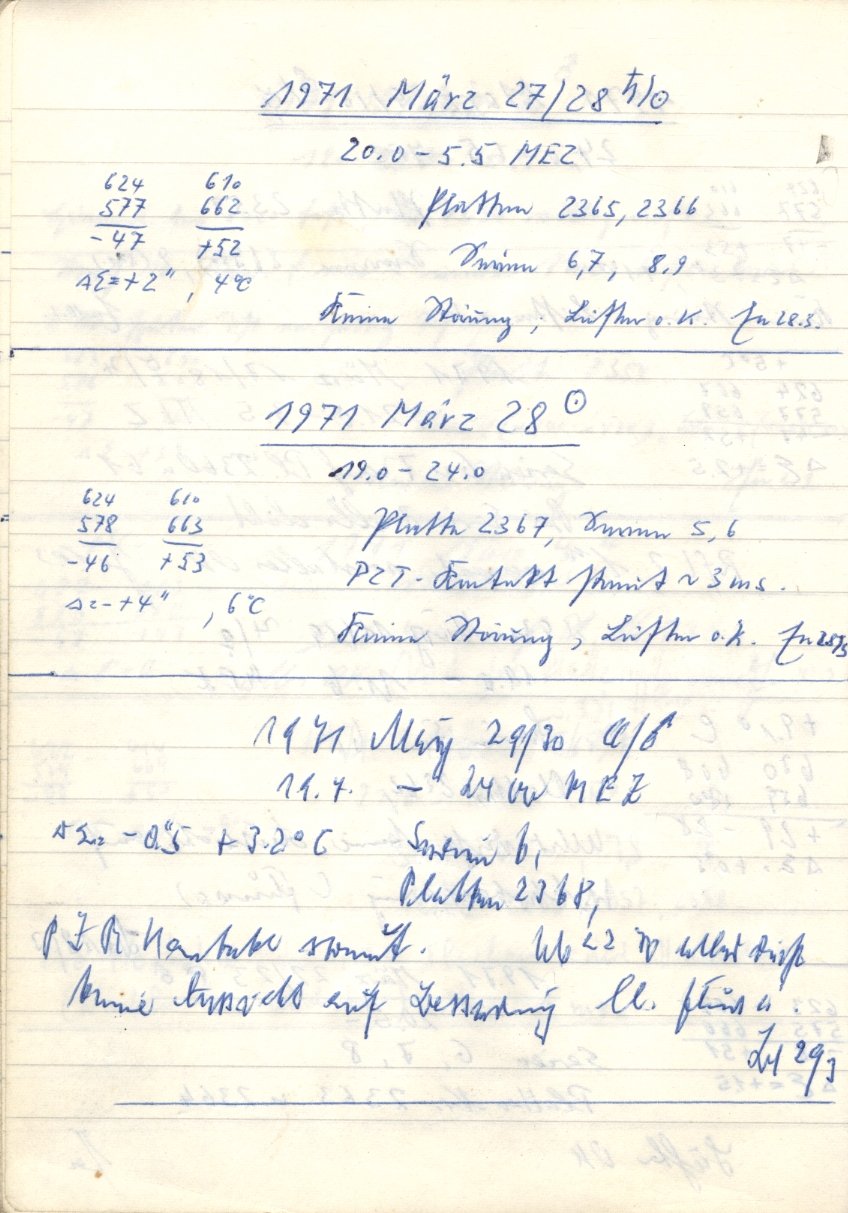 1971 März 27/28 ♄/☉
20.0 – 5.5 MEZ
624 610
577 662 Platten 2365, 2366
-47 +52
Serien 6,7, 8.9
ΔΣ=+2" , 4°C
Keine Störung, Lüfter o.K. 28.3.
1971 März 28 ☉
19.0 – 24.0
624 610
578 663 Platte 2367, Serien 5,6
-46 +53
PZT-Kontakt streut ~ 3 ms.
Δ=+4" , 6°C
Keine Störung, Lüfter o.K. 28/3
1971 März 29/30 ☾/♂
19.7. – 24 00 MEZ
ΔΣ= -0".5 + 3.2° C Serien 6,
Platten 2368,
PZT-Kontakt streut. Ab 22 alles dicht
keine Aussicht auf Besserung
29/3